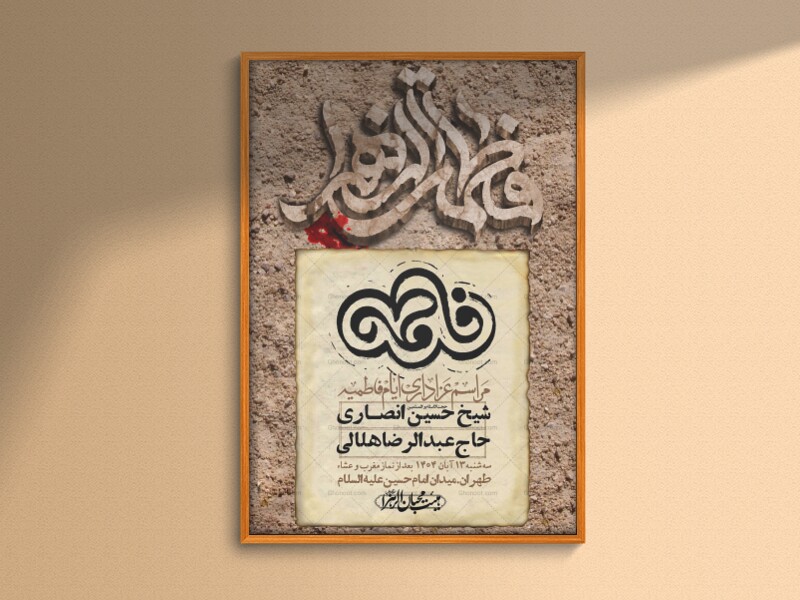 فاطمة الزهرا
فاطمه
مراسم عزاداری ایام فاطمیه
حجت الاسلام والمسلمین
شیخ حسین انصاری
حاج عبدالرضا هلالی
سه شنبه ۱۳ آبان ۱۴۰۴ بعد از نماز مغرب و عشاء
طهران.میدان امام حسین علیه السلام
هیئت محبان الزهرا